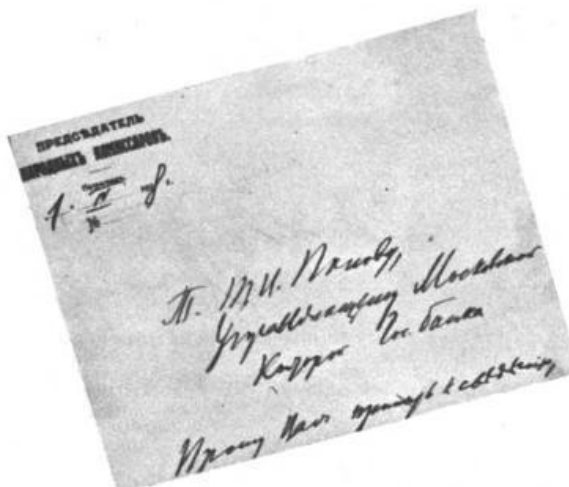 ПРЕДСѢДАТЕЛЬ
НАРОДНЫХЪ КОМИССАРОВЪ.
№
Т. Т.И. Попову,
Управляющему Московской
Гос. банка
Прошу Вас принять к сведению